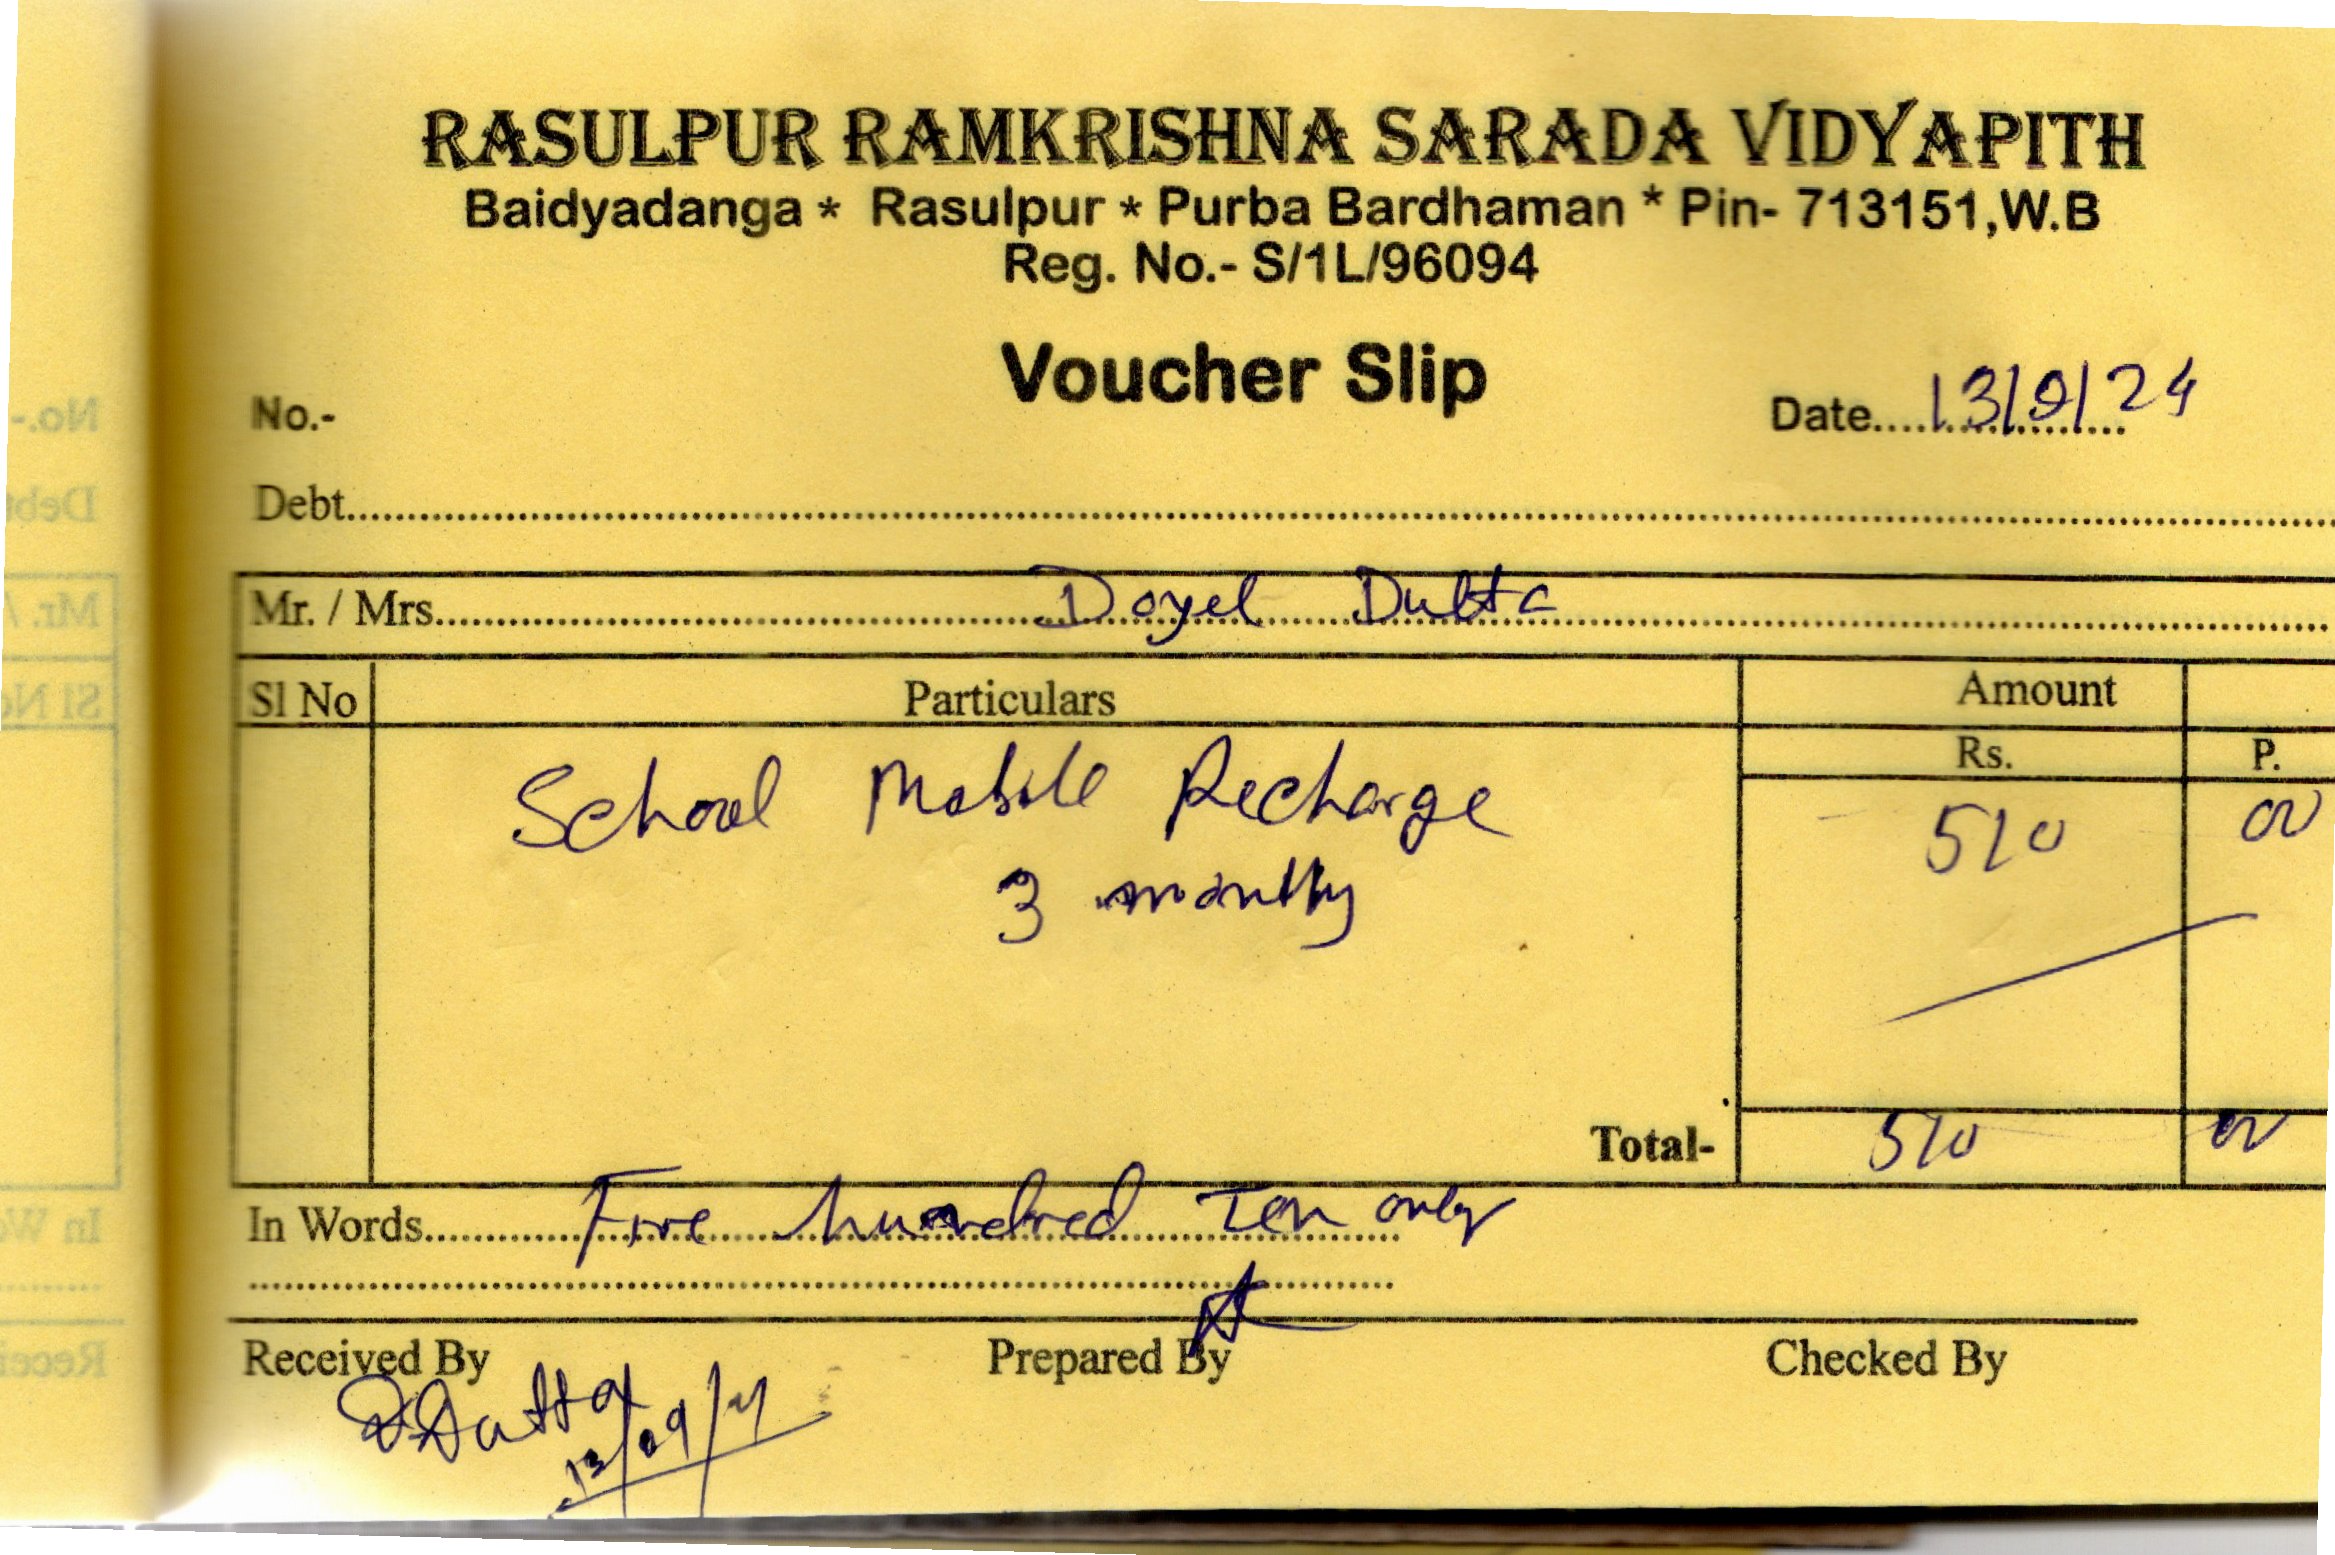 RASULPUR RAMKRISHNA SARADA VIDYAPITH
Baidyadanga * Rasulpur * Purba Bardhaman * Pin- 713151,W.B
Reg. No.- S/1L/96094
Voucher Slip
No.- Date....13/9/24
Debt
Mr. / Mrs. Doyel Dutta
Sl No Particulars Amount
Rs. P.
School Mobile Recharge 510 00
3 monthy
Total- 510 00
In Words Five hundred Ten only
Received By Prepared By Checked By
D Dutta
13/09/24